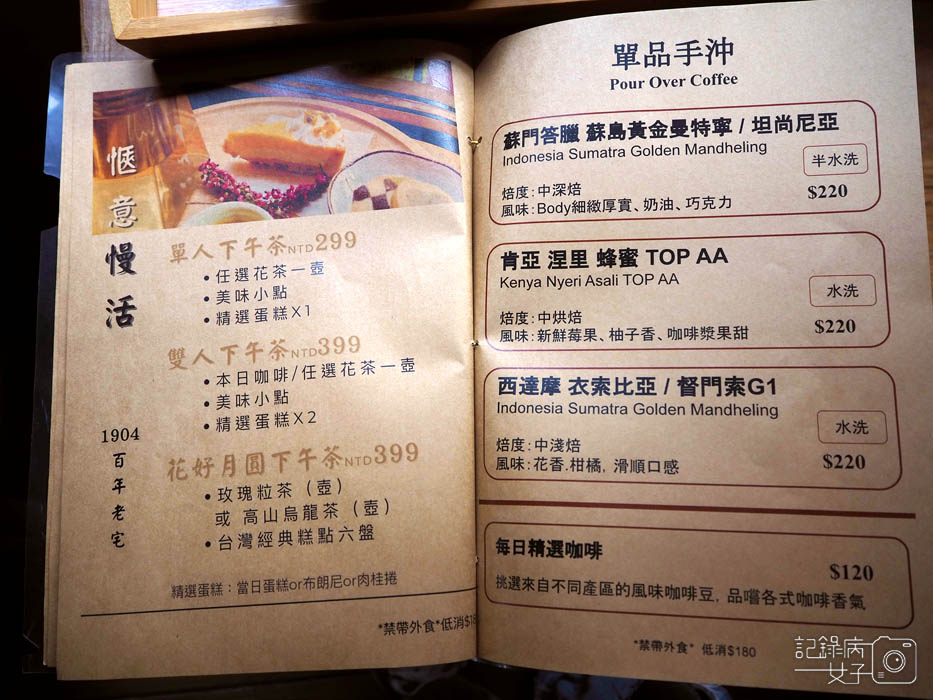 愜意慢活
1904
百年老宅
單人下午茶NTD299
•任選花茶一壺
•美味小點
•精選蛋糕X1
雙人下午茶NTD399
•本日咖啡/任選花茶一壺
•美味小點
•精選蛋糕X2
花好月圓下午茶NTD399
•玫瑰粒茶（壺）
或 高山烏龍茶（壺）
•台灣經典糕點六盤
精選蛋糕：當日蛋糕or布朗尼or肉桂捲
*禁帶外食*低消$18
單品手沖
Pour Over Coffee
蘇門答臘 蘇島黃金曼特寧 / 坦尚尼亞
Indonesia Sumatra Golden Mandheling
半水洗
焙度：中深焙
$220
風味：Body細緻厚實、奶油、巧克力
肯亞 涅里 蜂蜜 TOP AA
Kenya Nyeri Asali TOP AA
水洗
焙度：中烘焙
$220
風味：新鮮莓果、柚子香、咖啡漿果甜
西達摩 衣索比亞 / 督門索G1
Indonesia Sumatra Golden Mandheling
水洗
焙度：中淺焙
$220
風味：花香.柑橘，滑順口感
每日精選咖啡
$120
挑選來自不同產區的風味咖啡豆，品嚐各式咖啡香氣
*禁帶外食* 低消$180
記錄病
女子